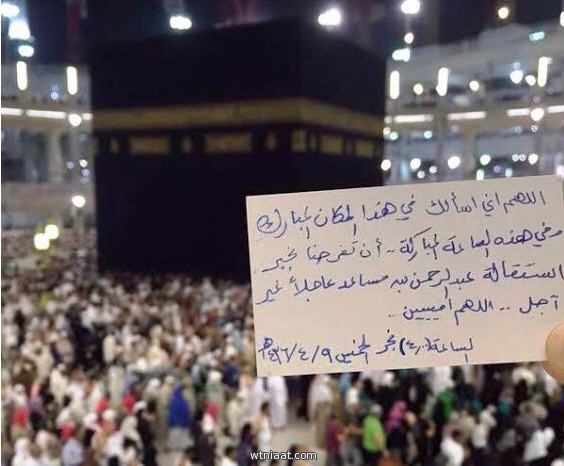 اللهم اني اسألك في هذا المكان المبارك
وفي هذه الساعة المباركة .. أن تفرحنا بخبر
استقالة عبدالرحمن بن مساعد عاجلاً غير
آجل .. اللهم آمييين ..
الساعة (٤,٠٠) فجر الخميس ١٤٣٦/٤/٩هـ
wtniaat.com